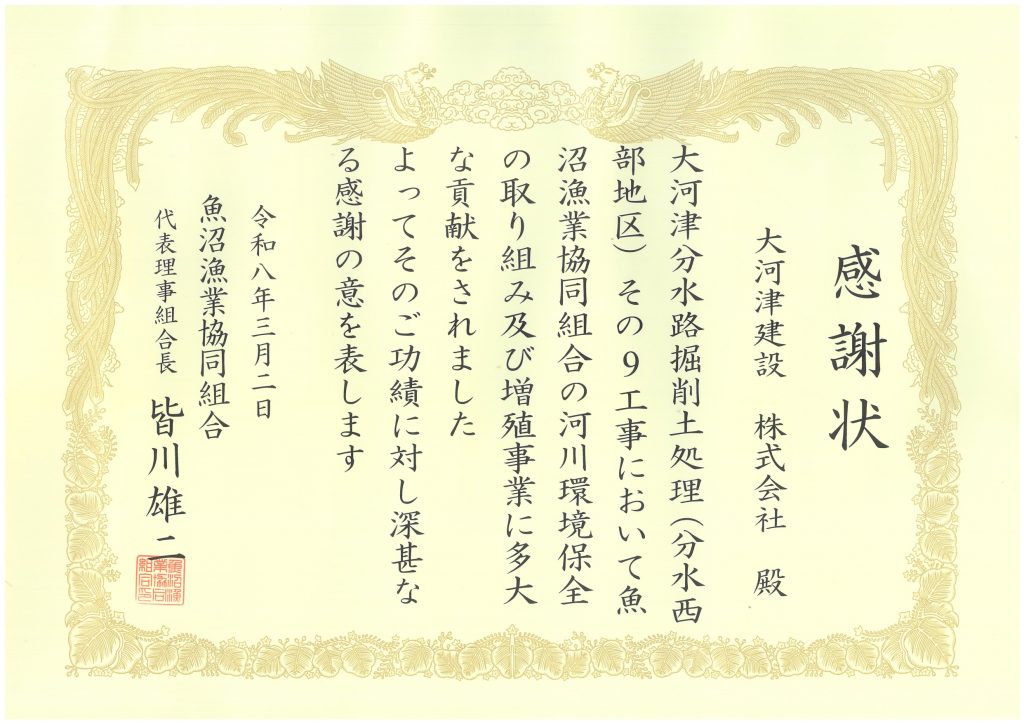 感謝状
大河津建設　株式会社　殿
大河津分水路掘削土処理（分水西
部地区）その９工事において魚
沼漁業協同組合の河川環境保全
の取り組み及び増殖事業に多大
な貢献をされました
よってそのご功績に対し深甚な
る感謝の意を表します
令和八年三月二日
魚沼漁業協同組合
代表理事組合長　皆川雄二
魚沼漁
業協同
組合印